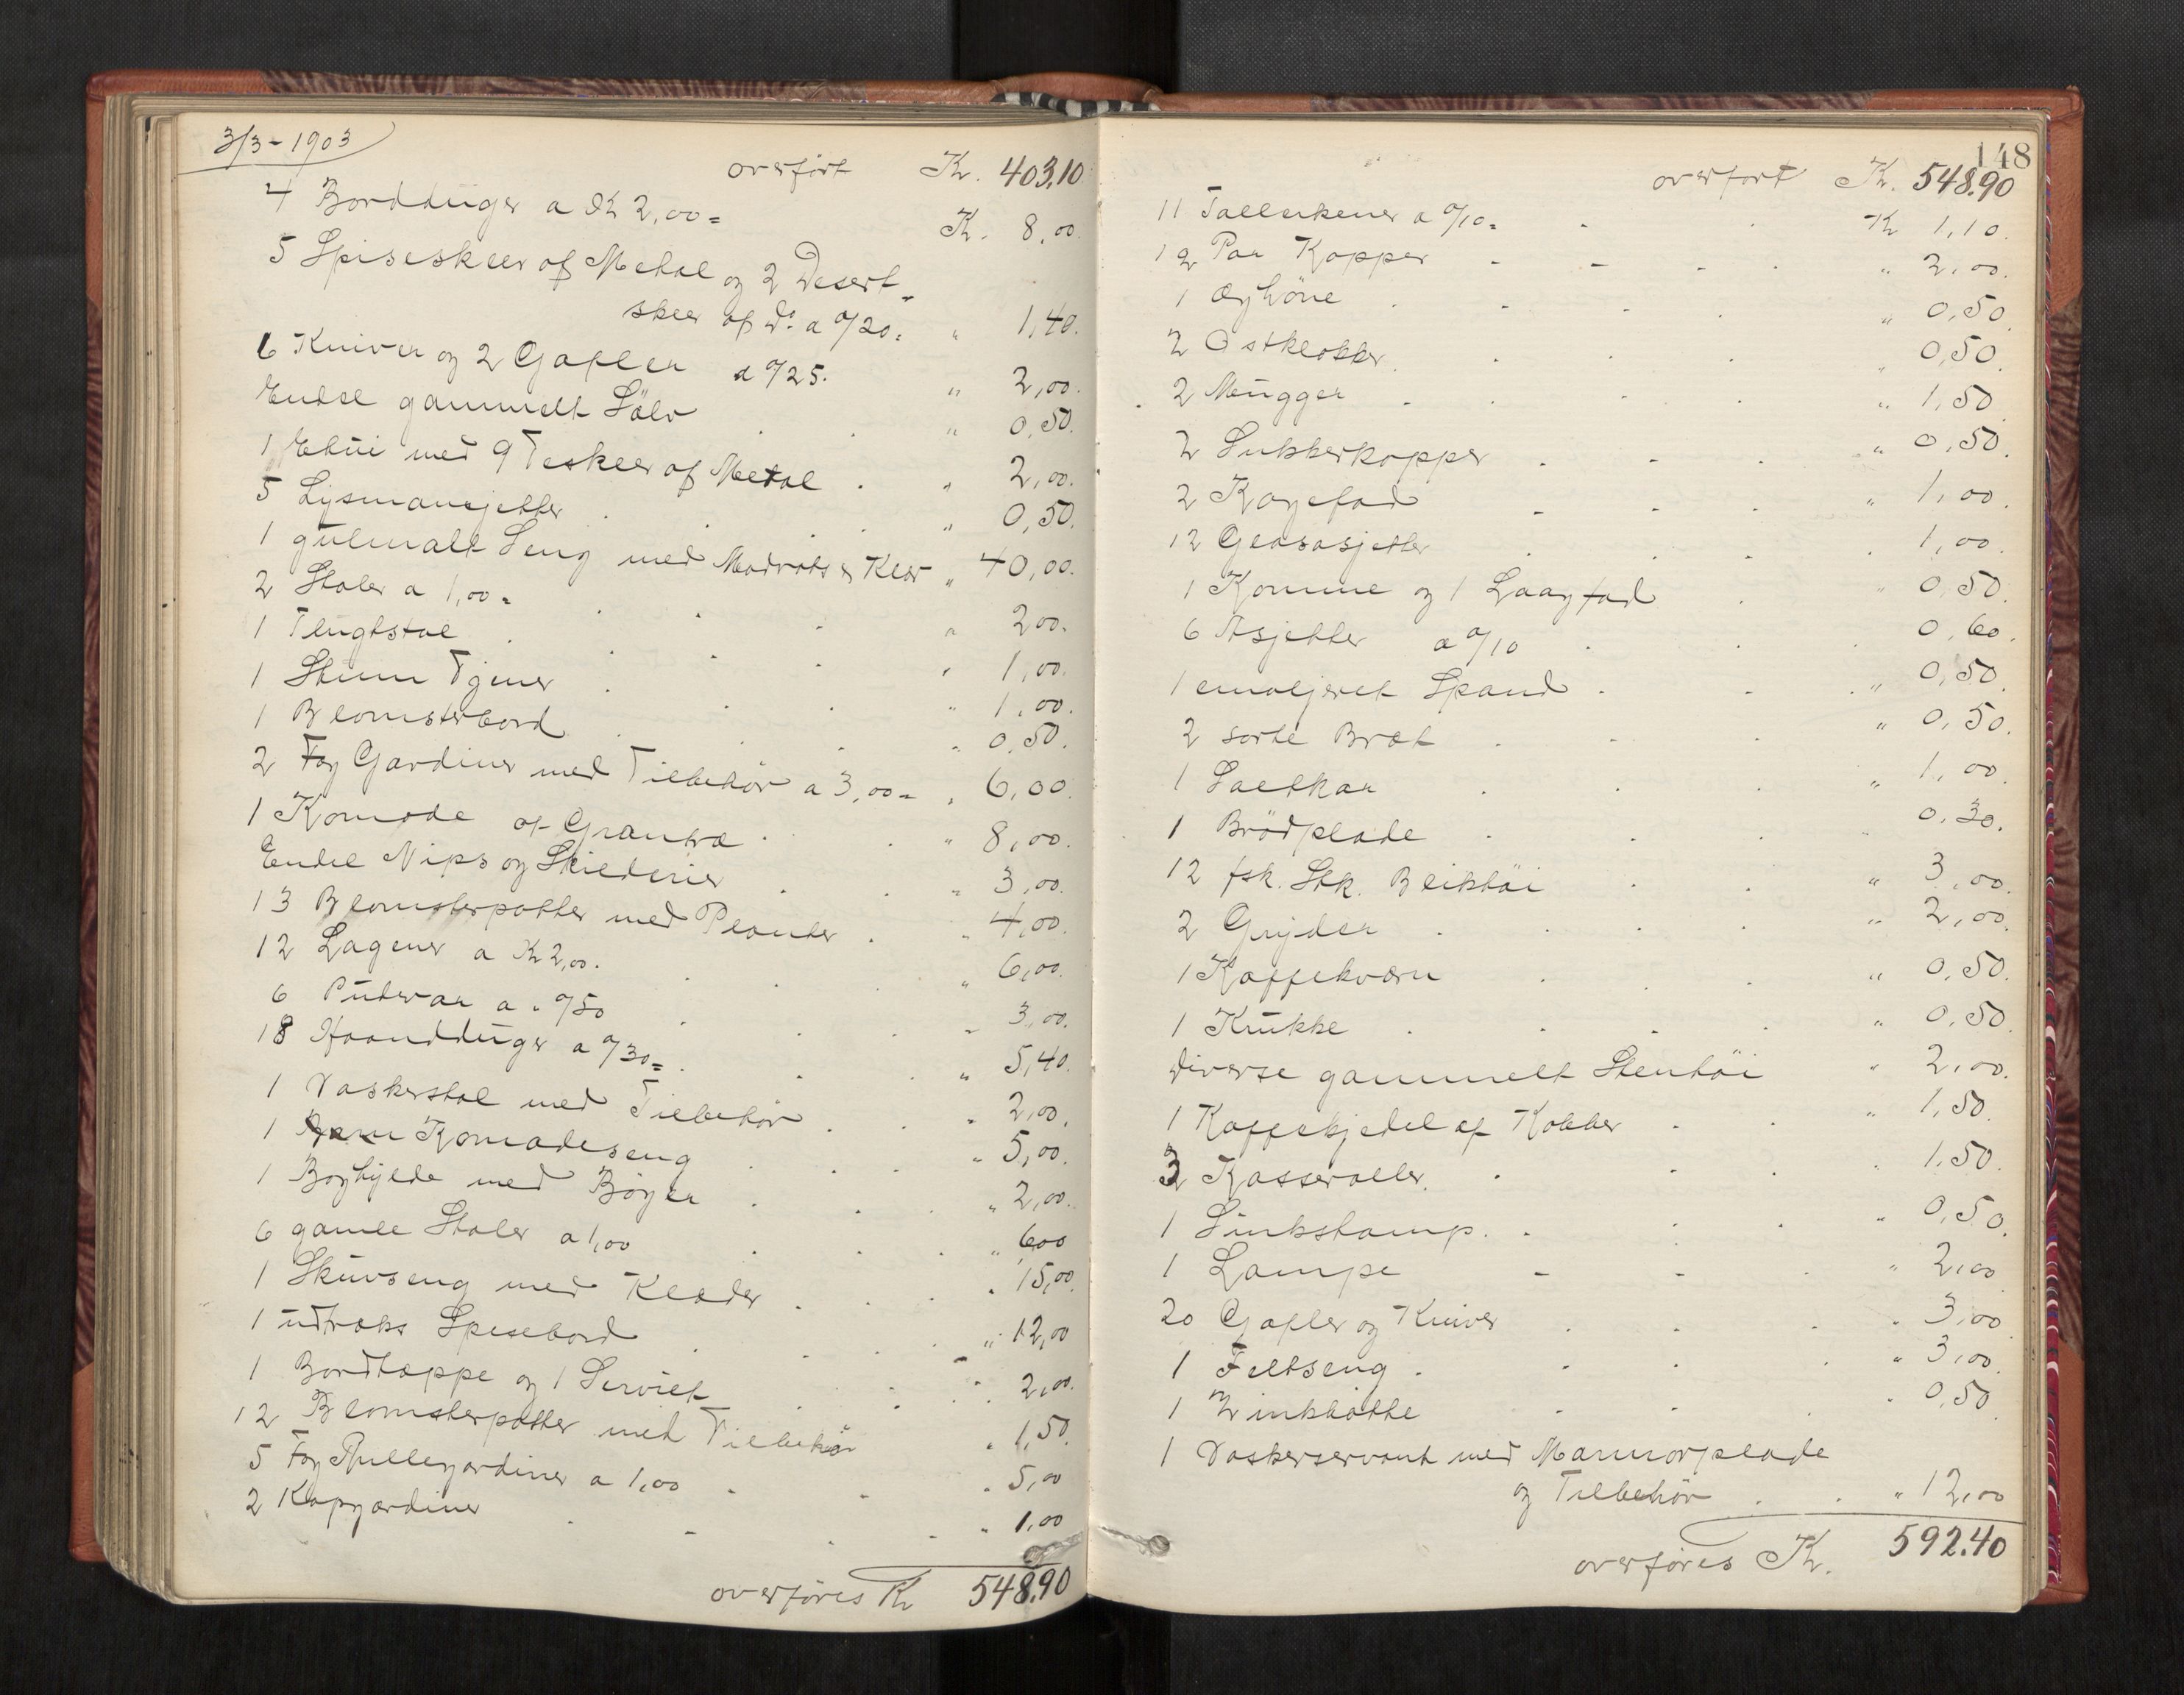 3/3-1903
overført Kr. 403.10
4 Bordduger a Kr 2,00 = Kr. 8,00.
5 Spiseskeer af Metal og 2 Desert-
skeer af Do. a 0/20. " 1,40.
6 Kniver og 2 Gafler a 0/25. " 2,00.
Endel gammelt Sölv " 0,50.
1 Etui med 9 Teskeer af Metal " 2,00.
5 Lysmansjetter " 0,50.
1 gulmalt Seng med Madrats & Klær " 40,00.
2 Stoler a 1,00 = " 2 00.
1 Flugtstol " 1,00.
1 Stum Tjener " 1,00.
1 Blomsterbord " 0,50.
2 Fag Gardiner med Tilbehör a 3,00 = " 6,00.
1 Komode af Grantræ " 8,00.
Endel Nips og Skilderier " 3,00.
13 Blomsterpotter med Planter " 4,00.
12 Lagener a Kr 2,00. " 6,00.
6 Pudevar a " 0/50 " 3,00.
18 Haandduger a 0/30 = " 5,40.
1 Vaskerstol med Tilbehör " 2,00.
1 Komodeseng " 5,00.
1 Boghylde med Böger " 2,00.
6 gamle Stoler a 1,00 " 6 00
1 Skuvseng med Klæder " 15,00
1 udtræks Spisebord " 12,00
1 Bordtæppe og 1 Serviet " 2,00.
12 Blomsterpotter med Tilbehör " 1,50.
5 Fag Rullegardiner a 1,00 " 5,00
2 Kapgardiner " 1,00
overføres Kr 548.90
148
overført Kr. 548.90
11 Tallerkener a 0/10 = Kr 1,10.
12 Par Kopper " 2,00.
1 Æghöne " 0,50.
2 Ostklokker " 0,50.
2 Mugger " 1,50
2 Sukkerkopper " 0,50.
2 Kagefad " 1,00.
12 Glasasjetter " 1,00.
1 Komme og 1 Laagfad " 0,50.
6 Asjetter a 0/10 0,60.
1 emaljeret Spand " 0,50.
2 sorte Bræt " 0,50.
1 Saltkar " 1,00.
1 Brödplade " 0,30.
12 fsk. Stk. Bliktöi " 3,00.
2 Gryder " 2,00.
1 Kaffekværn " 0,50.
1 Krukke " 0,50.
diverse gammelt Stentöi " 2,00.
1 Kaffekjedel af Kobber " 1,50.
3 Kasseroller " 1,50.
1 Sinkstamp " 0,50.
1 Lampe " 2,00
20 Gafler og Kniver " 3,00
1 Feltseng " 3,00.
1 Zinkbøtte " 0,50
1 Vaskerservant med Marmorplade
og Tilbehör " 12,00
overføres Kr. 592.40